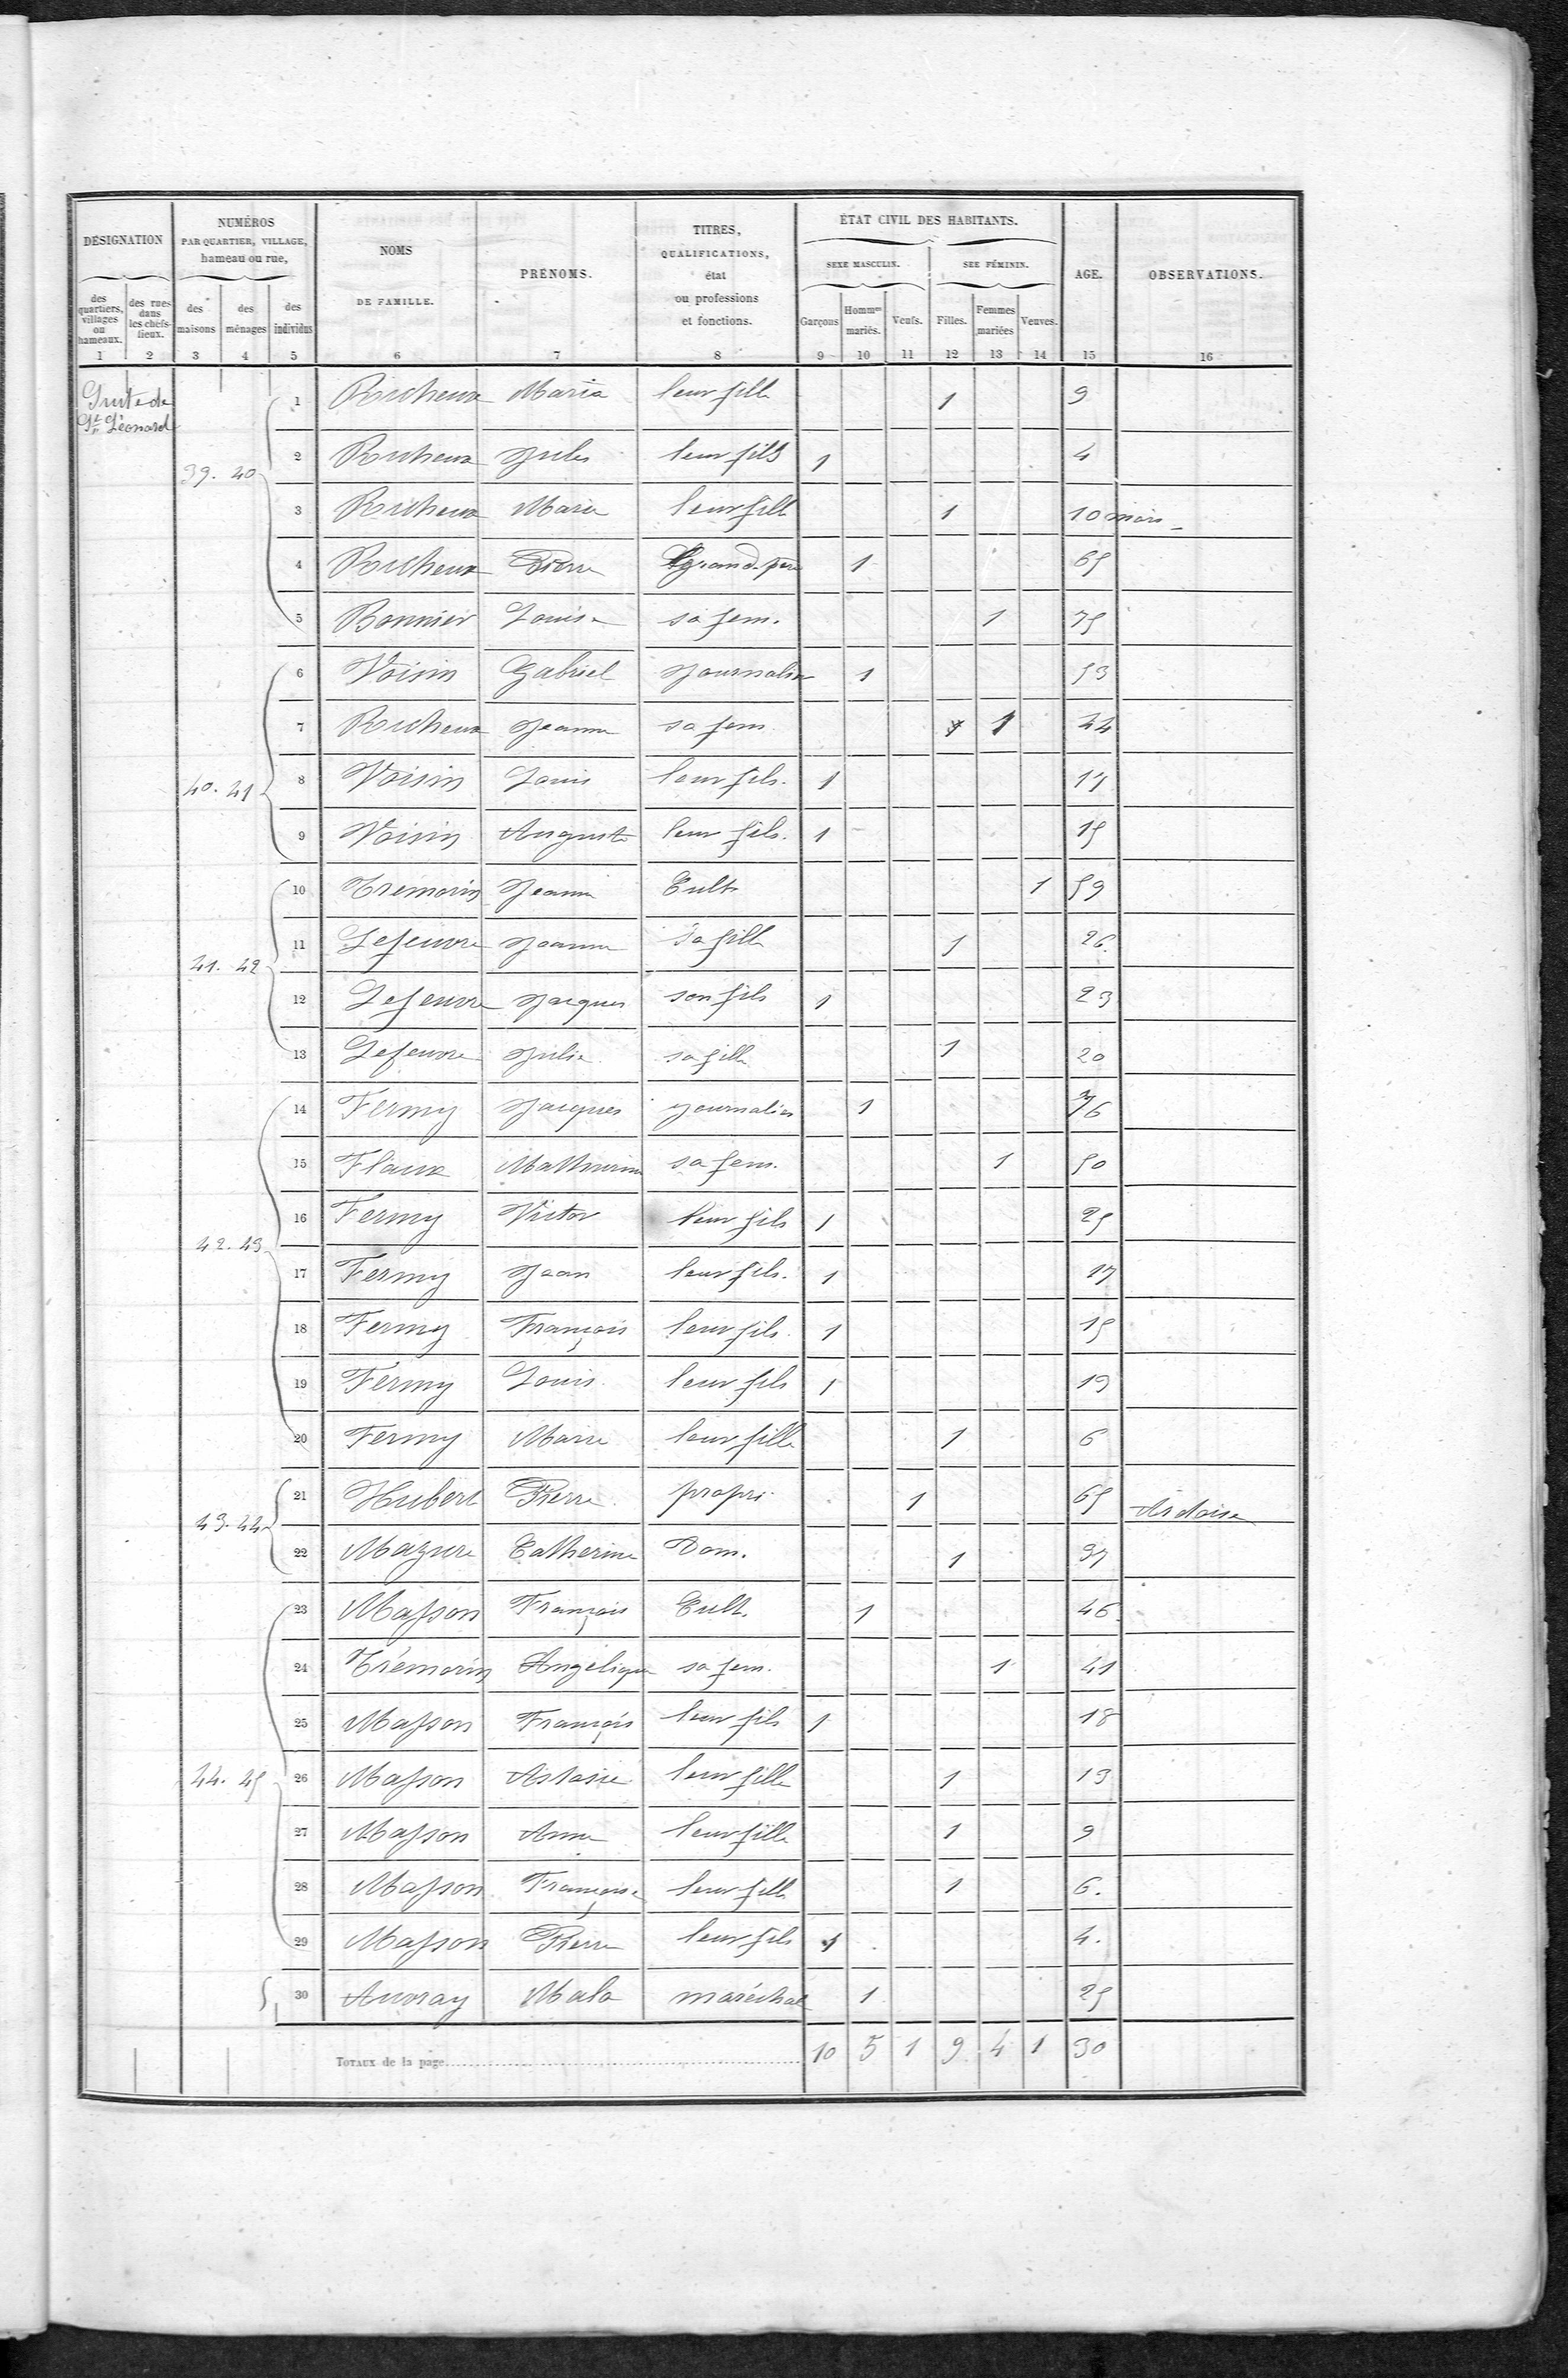 DÉSIGNATION
NUMÉROS PAR QUARTIER, VILLAGE, hameau ou rue,
NOMS DE FAMILLE.
PRÉNOMS.
TITRES, QUALIFICATIONS, état ou professions et fonctions.
ÉTAT CIVIL DES HABITANTS.
SEXE MASCULIN. SEE FÉMININ.
AGE.
OBSERVATIONS.
des quartiers, villages ou hameaux. des rues dans les chefs-lieux. des maisons des ménages des individus
Garçons Hommes mariés. Veufs. Filles. Femmes mariées Veuves.
1 2 3 4 5 6 7 8 9 10 11 12 13 14 15 16
Suite de St Léonard
39. 40
1 Richeux Maria leur fille 1 9
2 Richeux Jules leur fils 1 4
3 Richeux Marie leur fille 1 10 mois
4 Richeux Pierre grand-père 1 65
5 Bonnier Louise sa fem. 1 75
40. 41
6 Voisin Gabriel Journalier 1 53
7 Richeux Jeanne sa fem 1 44
8 Voisin Louis leur fils. 1 17
9 Voisin Auguste leur fils. 1 15
41. 42
10 Trémorin Jeanne Cult. 1 59
11 Lefeuvre Jeanne sa fille 1 26.
12 Lefeuvre Jacques son fils 1 23
13 Lefeuvre Julie sa fille 1 20
42. 43
14 Fermy Jacques journalier 1 76
15 Flaux Mathurine sa fem. 1 50
16 Fermy Victor leur fils 1 25
17 Fermy Jean leur fils. 1 17
18 Fermy François leur fils. 1 15
19 Fermy Louis leur fils 1 13
20 Fermy Marie leur fille 1 6
43. 44
21 Hubert Pierre propri. 1 65 Ardoise
22 Mazure Catherine Dom. 1 37
44. 45
23 Masson François Cult. 1 46
24 Trémorin Angélique sa fem. 1 41
25 Masson François leur fils 1 18
26 Masson Astasie leur fille 1 13
27 Masson Anne leur fille 1 9
28 Masson Françoise leur fille 1 6.
29 Masson Pierre leur fils 1 4.
30 Auvray Malo maréchal 1 25
TOTAUX de la page 10 5 1 9 4 1 30